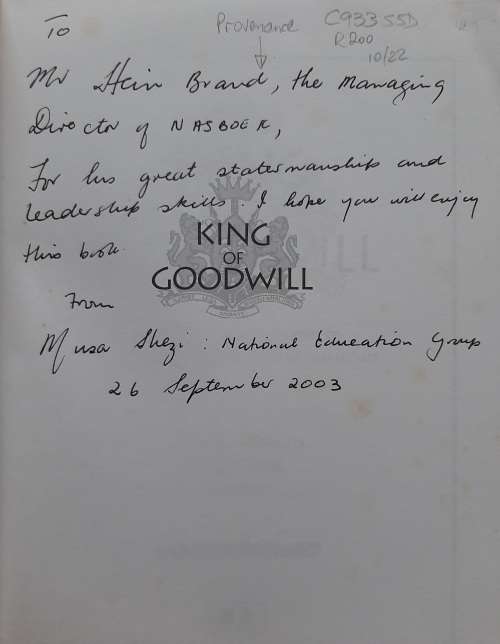 To
Provenance
C933 SSD
R200
10/22
Mr Hein Brand, the Managing
Director of NASBOEK,
For his great statesmanship and
leadership skills. I hope you will enjoy
this book.
KING
OF
GOODWILL
From
Musa Shezi : National Education Group
26 September 2003